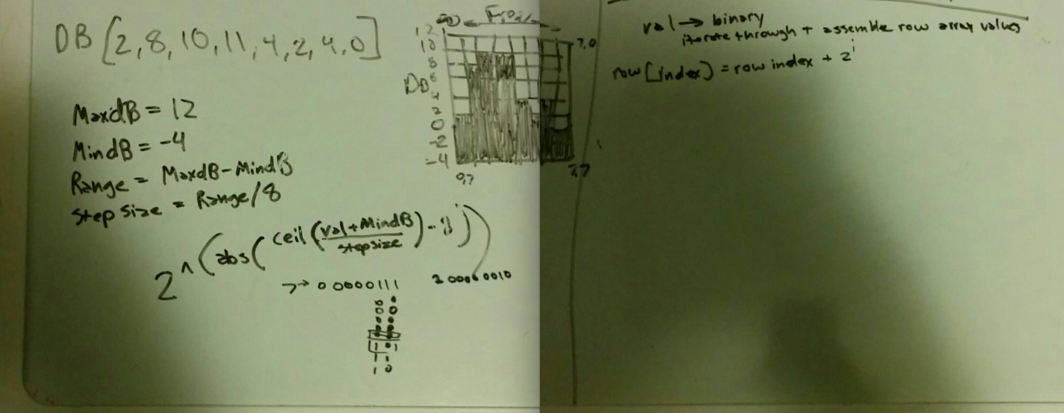 DB [2, 8, 10, 11, 4, 2, 4, 0]
MaxdB = 12
MindB = -4
Range = MaxdB - MindB
Step size = Range/8
2^(abs(ceil(val + MindB / stepsize) - 1))
7 → 00000111
12
10
8
6
4
2
0
-2
-4
DB
0,7
7,0
7,7
val → binary
iterate through + assemble row array values
row [index] = row index + 2^i